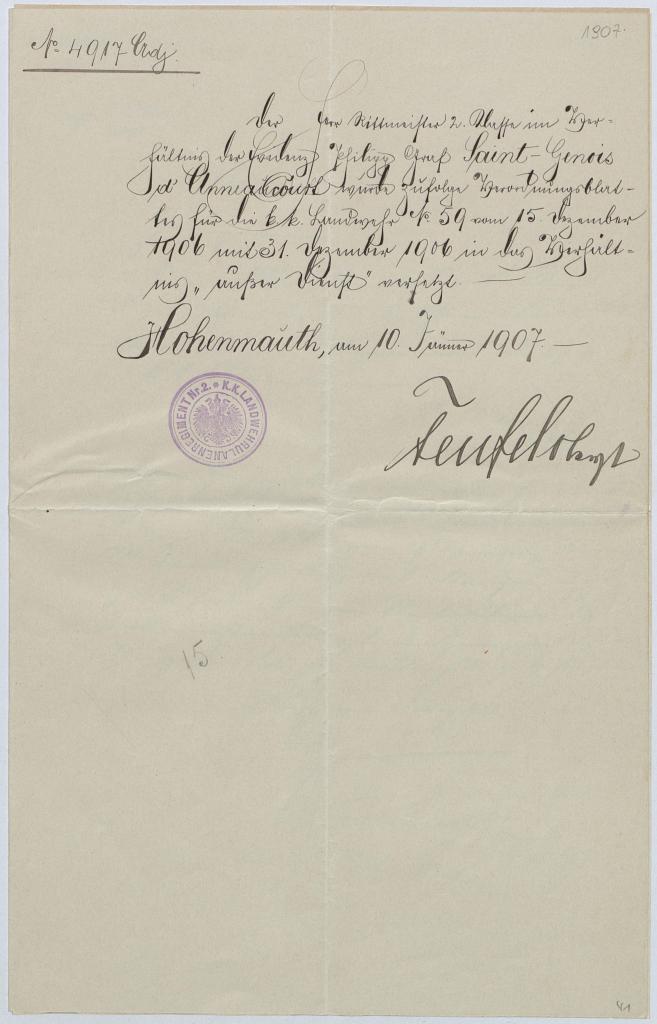 1907.
№ 4917 Adj.
Der Herr Rittmeister 2. Klasse im Ver-
hältnis der Evidenz Philipp Graf Saint-Genois
d'Anneaucourt wurde zufolge Verordnungsblat-
tes für die k. k. Landwehr № 59 vom 15. Dezember
1906 mit 31. Dezember 1906 in das Verhält-
nis „außer Dienst" versetzt. —
Hohenmauth, am 10. Jänner 1907. —
K.K. LANDWEHRULANENREGIMENT Nr. 2.
15
41